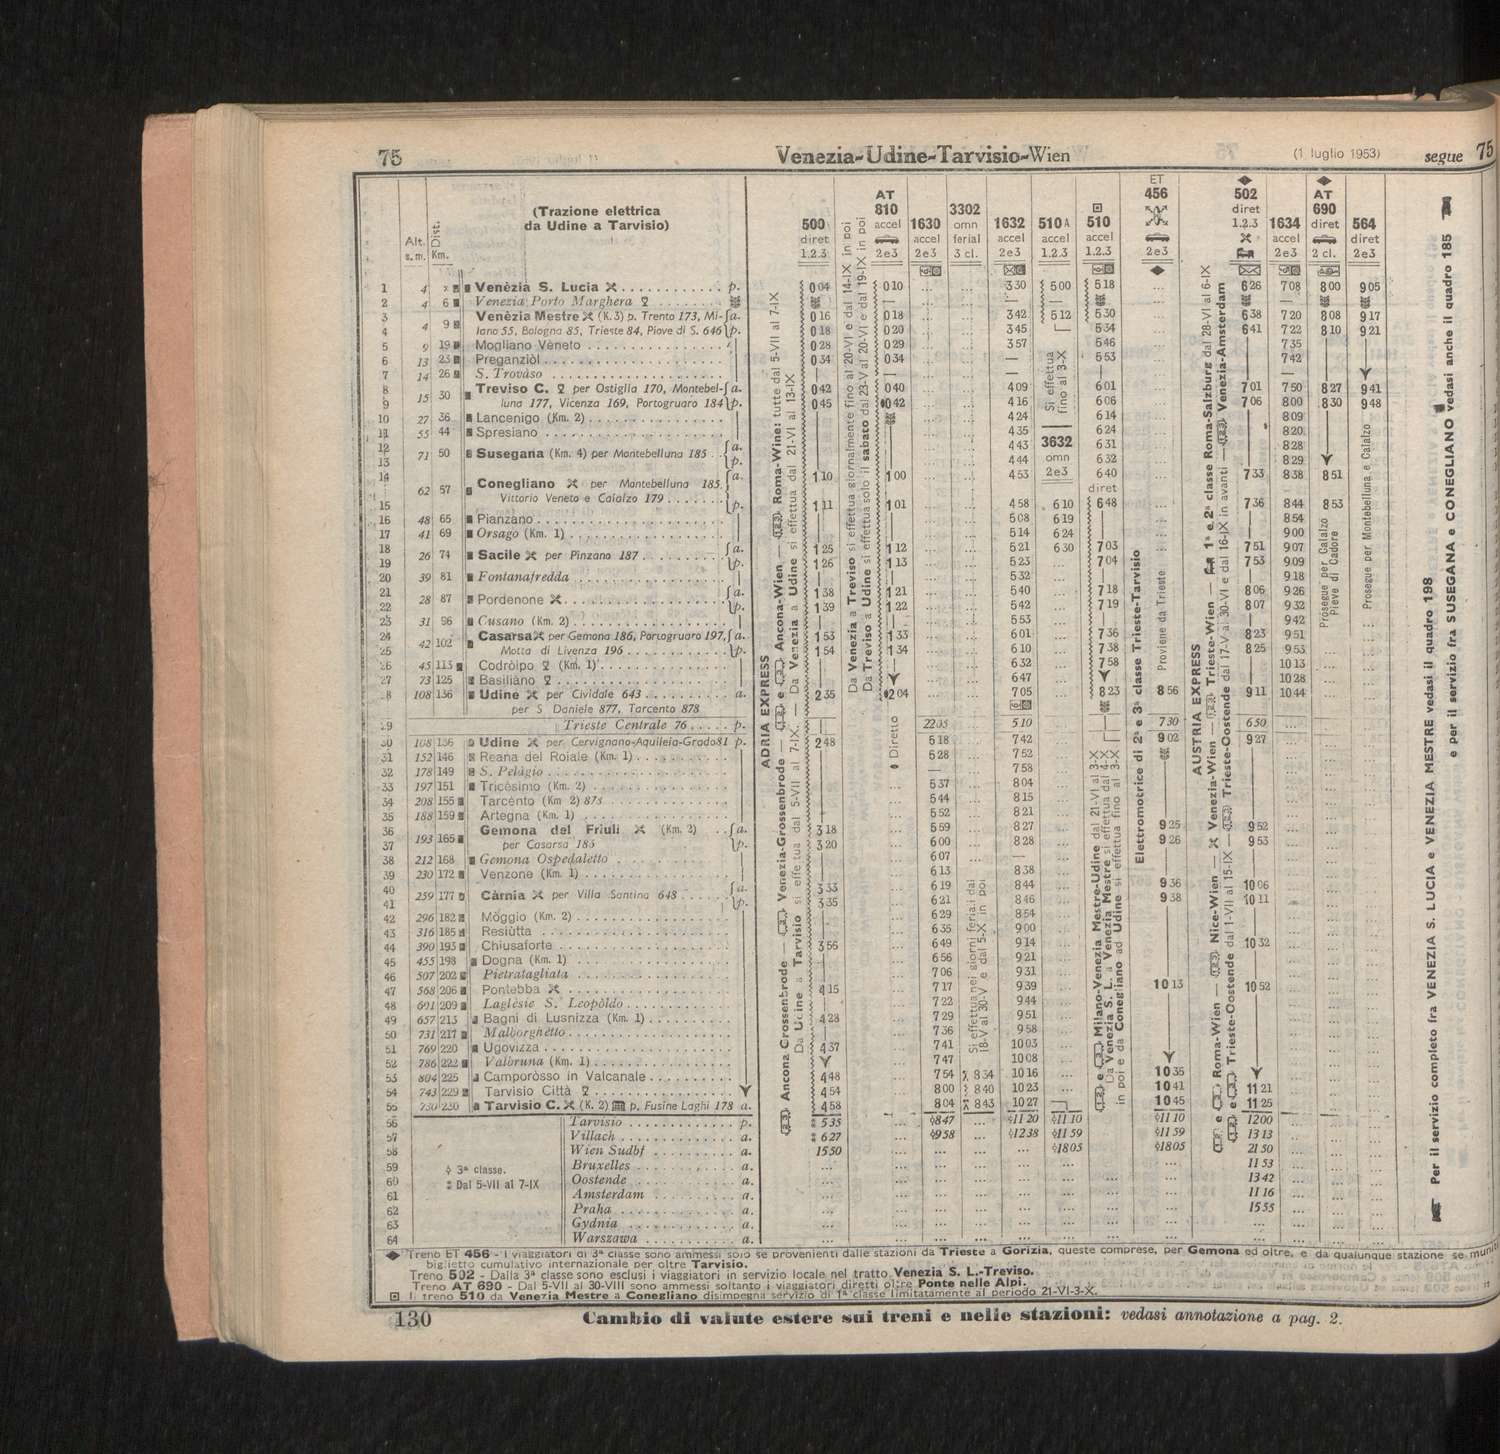 75 Venezia-Udine-Tarvisio-Wien (1 luglio 1953) segue 75
(Trazione elettrica
da Udine a Tarvisio)
Alt. s.m. Dist. Km.
500 diret 1.2.3
AT 810 accel 2e3
1630 accel 2e3
3302 omn ferial 3 cl.
1632 accel 2e3
510A accel 1.2.3
510 accel 1.2.3
ET 456 2e3
502 diret 1.2.3
1634 accel 2e3
AT 690 diret 2 cl.
564 diret 2e3
1 4 Venèzia S. Lucia p. 0 04 0 10 ... ... 3 30 5 00 5 18 ... 6 26 7 08 8 00 9 05
2 4 6 Venezia Porto Marghera
3 Venèzia Mestre (K.3) p. Trento 173, Mi- a. 0 16 0 18 ... ... 3 42 5 12 5 30 ... 6 38 7 20 8 08 9 17
4 4 9 lano 55, Bologna 85, Trieste 84, Piove di S. 646 p. 0 18 0 20 ... ... 3 45 5 34 ... 6 41 7 22 8 10 9 21
5 9 19 Mogliano Vèneto 0 28 0 29 3 57 5 46 7 35
6 13 23 Preganziòl 0 34 0 34 — 5 53 7 42
7 14 26 S. Trovaso
8 Treviso C. per Ostiglia 170, Montebel- a. 0 42 0 40 4 09 6 01 7 01 7 50 8 27 9 41
9 15 30 luna 177, Vicenza 169, Portogruaro 184 p. 0 45 0 42 4 16 6 06 7 06 8 00 8 30 9 48
10 27 36 Lancenigo (Km. 2) 4 24 6 14 8 09
11 55 44 Spresiano 4 35 6 24 8 20
12 71 50 Susegana (Km. 4) per Montebelluna 185 a. 4 43 6 31 8 28
13 p. 4 44 6 32 8 29
3632 omn 2e3
14 62 57 Conegliano per Montebelluna 185, a. 1 10 1 00 4 53 6 40 7 33 8 38 8 51
diret
15 Vittorio Veneto e Calalzo 179 p. 1 11 1 01 4 58 6 10 6 48 7 36 8 44 8 53
16 48 65 Pianzano 5 08 6 19 8 54
17 41 69 Orsago (Km. 1) 5 14 6 24 9 00
18 26 74 Sacile per Pinzano 187 a. 1 25 1 12 5 21 6 30 7 03 7 51 9 07
19 p. 1 26 1 13 5 23 7 04 7 53 9 09
20 39 81 Fontanafredda 5 32 9 18
21 28 87 Pordenone a. 1 38 1 21 5 40 7 18 8 06 9 26
22 p. 1 39 1 22 5 42 7 19 8 07 9 32
23 31 96 Cusano (Km. 2) 5 53 9 42
24 42 102 Casarsa per Gemona 186, Portogruaro 197, a. 1 53 1 33 6 01 7 36 8 23 9 51
25 Motta di Livenza 196 p. 1 54 1 34 6 10 7 38 8 25 9 53
26 45 113 Codròipo (Km. 1) 6 32 7 58 10 13
27 73 125 Basiliano 6 47 10 28
28 108 136 Udine per Cividale 643 a. 2 35 2 04 7 05 8 23 8 56 9 11 10 44
per S Daniele 877, Tarcento 878
29 Trieste Centrale 76 p. 22 05 5 10 7 30 6 50
30 108 136 Udine per Cervignano-Aquileia-Grado 81 p. 2 48 5 18 7 42 9 02 9 27
31 152 146 Reana del Roiale (Km. 1) 5 28 7 52
32 178 149 S. Pelàgio — 7 58
33 197 151 Tricèsimo (Km. 2) 5 37 8 04
34 208 155 Tarcènto (Km 2) 873 5 44 8 15
35 188 159 Artegna (Km. 1) 5 52 8 21
36 193 165 Gemona del Friuli (Km. 2) a. 3 18 5 59 8 27 9 25 9 52
37 per Casarsa 185 p. 3 20 6 00 8 28 9 26 9 53
38 212 168 Gemona Ospedaletto 6 07 —
39 230 172 Venzone (Km. 1) 6 13 8 38
40 259 177 Càrnia per Villa Santina 648 a. 3 33 6 19 8 44 9 36 10 06
41 p. 3 35 6 21 8 46 9 38 10 11
42 296 182 Mòggio (Km. 2) 6 29 8 54
43 316 185 Resiùtta 6 35 9 00
44 390 193 Chiusaforte 3 56 6 49 9 14 10 32
45 455 198 Dogna (Km. 1) 6 56 9 21
46 507 202 Pietratagliata 7 06 9 31
47 568 206 Pontebba 4 15 7 17 9 39 10 13 10 52
48 601 209 Laglèsie S. Leopòldo 7 22 9 44
49 657 213 Bagni di Lusnizza (Km. 1) 4 28 7 29 9 51
50 731 217 Malborghetto 7 36 9 58
51 769 220 Ugovizza 4 37 7 41 10 03
52 786 222 Valbruna (Km. 1) 7 47 10 08
53 804 225 Camporòsso in Valcanale 4 48 7 54 8 34 10 16 10 35
54 743 229 Tarvisio Città 4 54 8 00 8 40 10 23 10 41 11 21
55 730 230 Tarvisio C. (K. 2) p. Fusine Laghi 178 a. 4 58 8 04 8 43 10 27 10 45 11 25
56 Tarvisio p. 5 35 8 47 11 20 11 10 11 10 12 00
57 Villach a. 6 27 9 58 12 38 11 59 11 59 13 13
58 Wien Sudbf a. 15 50 ... ... ... 18 05 18 05 21 50
59 Bruxelles a. 11 53
60 Oostende a. 13 42
61 Amsterdam a. 11 16
62 Praha a. 15 55
63 Gydnia a.
64 Warszawa a.
3ª classe.
Dal 5-VII al 7-IX
ADRIA EXPRESS
Da Venezia a Treviso si effettua giornalmente fino al 20-VI e dal 14-IX in poi
Da Treviso a Udine si effettua solo il sabato dal 23-V al 20-VI e dal 19-IX in poi
Diretto
Si effettua nei giorni feriali dal
18-V al 30-V e dal 5-X in poi
Si effettua
fino al 3-X
Elettromotrice di 2ª e 3ª classe Trieste-Tarvisio
Proviene da Trieste
AUSTRIA EXPRESS
Prosegue per Calalzo
Pieve di Cadore
Prosegue per Montebelluna e Calalzo
Per il servizio completo fra VENEZIA S. LUCIA e VENEZIA MESTRE vedasi il quadro 198
e per il servizio fra SUSEGANA e CONEGLIANO vedasi anche il quadro 185
Treno ET 456 - I viaggiatori di 3ª classe sono ammessi solo se provenienti dalle stazioni da Trieste a Gorizia, queste comprese, per Gemona ed oltre, e da qualunque stazione se muniti
biglietto cumulativo internazionale per oltre Tarvisio.
Treno 502 - Dalla 3ª classe sono esclusi i viaggiatori in servizio locale nel tratto Venezia S. L.-Treviso.
Treno AT 690 - Dal 5-VII al 30-VIII sono ammessi soltanto i viaggiatori diretti oltre Ponte nelle Alpi.
Il treno 510 da Venezia Mestre a Conegliano disimpegna servizio di 1ª classe limitatamente al periodo 21-VI-3-X.
130 Cambio di valute estere sui treni e nelle stazioni: vedasi annotazione a pag. 2.